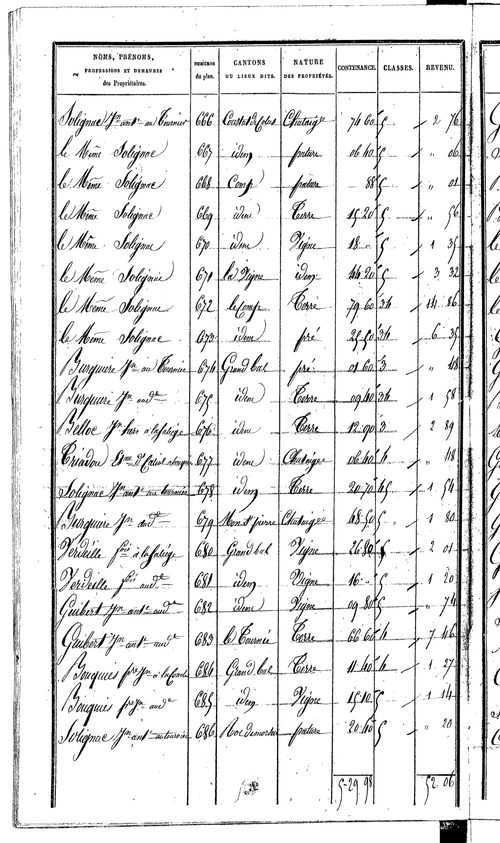 NOMS, PRÉNOMS, PROFESSIONS ET DEMEURES des Propriétaires. NUMÉROS du plan. CANTONS OU LIEUX DITS. NATURE DES PROPRIÉTÉS. CONTENANCE. CLASSES. REVENU.
Solignac Jn ant. au Tournier 666 Chataigr 74 60 5 2 76
le Même Solignac 667 idem pature 06 40 5 " 06
le Même Solignac 668 Comp pature 88 5 " 01
le Même Solignac 669 idem Terre 15 20 5 " 56
le Même Solignac 670 idem Vigne 18 " 5 1 35
le Même Solignac 671 la Vigne idem 44 20 5 3 32
le Même Solignac 672 le Comp Terre 79 60 34 14 86
le Même Solignac 673 idem pré 25 50 34 6 35
Burguiere Jn au Tournié 674 Grand bal pré 01 60 3 " 48
Burguiere Jn aud. 675 idem Terre 09 40 34 1 58
Belloc Jn à lafaliège 676 idem Terre 12 90 3 2 89
Triadou 677 idem Chataigr 06 40 4 " 48
Solignac Jn ant au tournié 678 idem Terre 20 70 45 1 54
Burguiere Jn aud. 679 Mon st pierre Chataigr 48 50 5 1 80
Verdeille à lafaliège 680 Grand bal Vigne 26 80 5 2 01
Verdeille aud. 681 idem Vigne 16 " 5 1 20
Guibert Jn ant. aud. 682 idem Vigne 09 80 5 " 74
Guibert Jn ant. aud. 683 le Tournié Terre 66 60 4 7 46
Bouques fr Jn 684 Grand bal Terre 11 40 4 1 27
Bouques fr Jn aud. 685 idem Vigne 15 10 5 1 14
Solignac Jn ant au tournié 686 pature 20 60 5 " 20
5-29 98 52 06